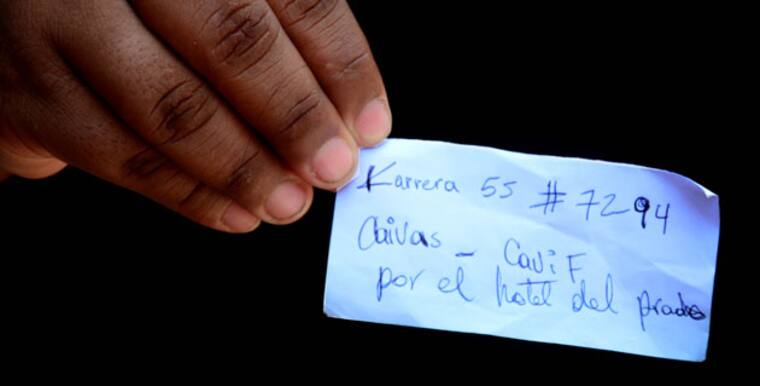 Karrera 55 # 7294
Caivas - Cavif
por el hotel del prado